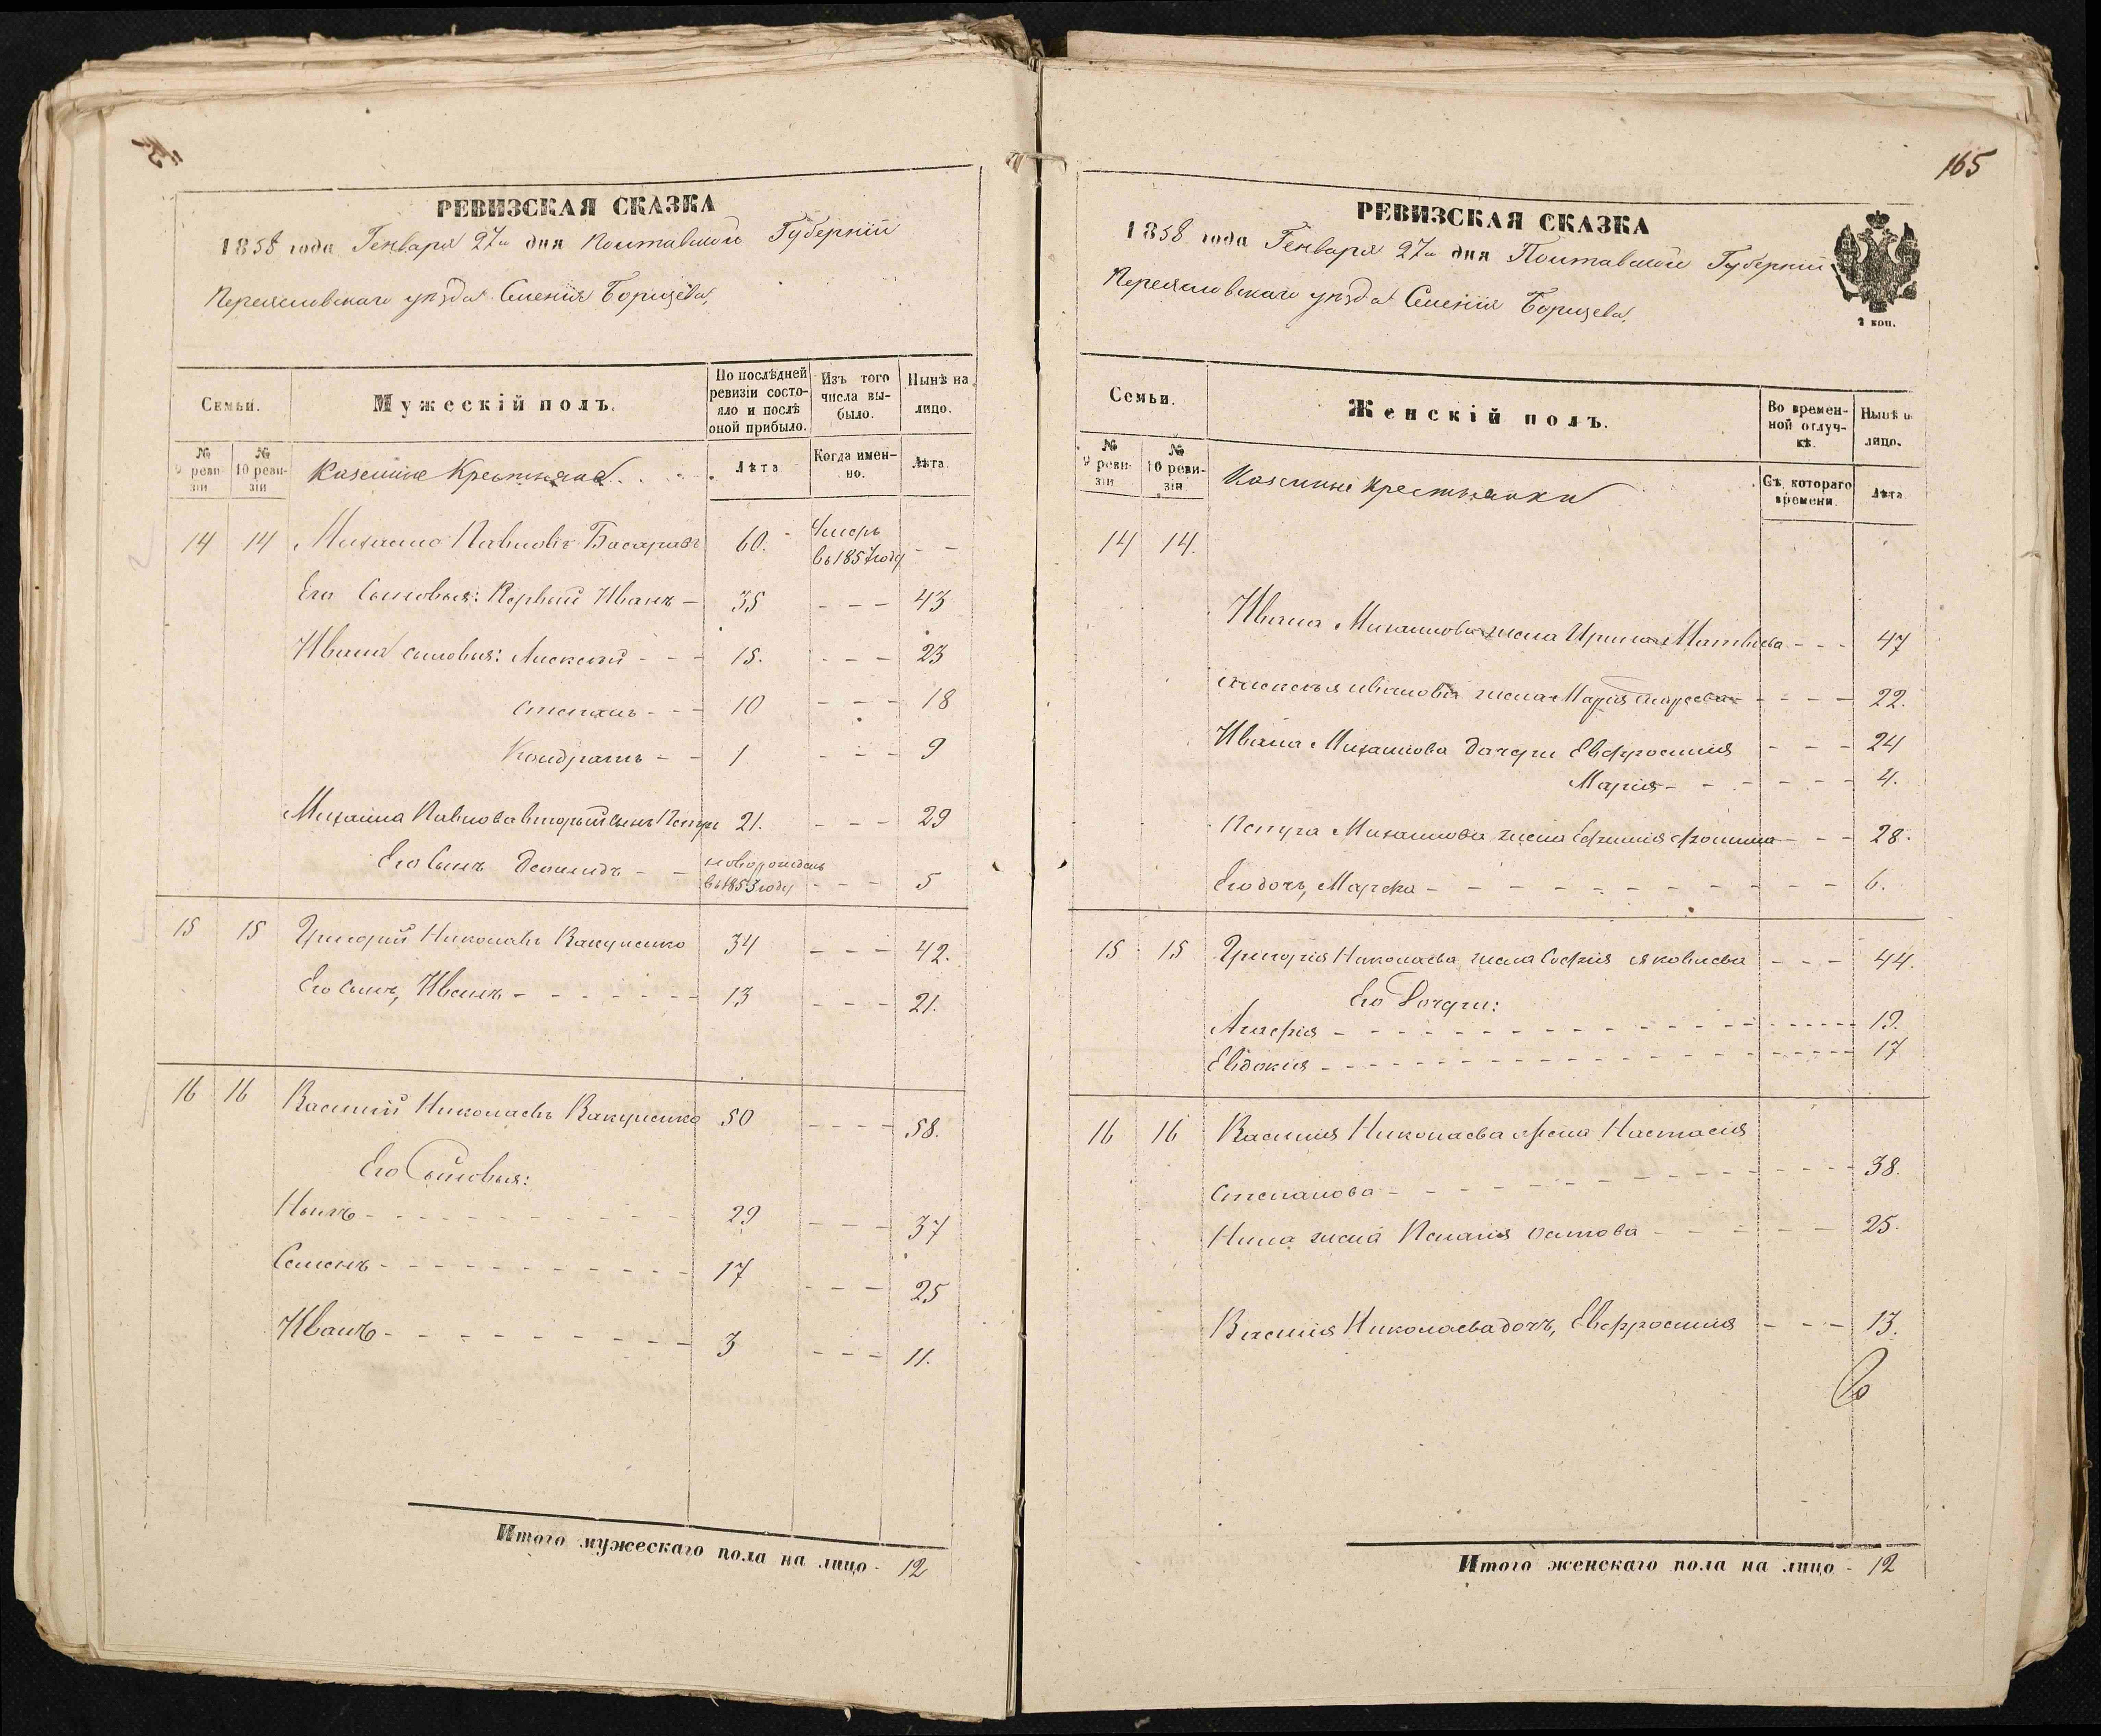 РЕВИЗСКАЯ СКАЗКА
1858 года Генваря 27го дня Полтавской Губерніи
Переяславскаго уѣзда Селенія Борщева,
Семьи.
Мужескій полъ.
По послѣдней ревизіи состояло и послѣ оной прибыло.
Изъ того числа выбыло.
Нынѣ на лицо.
№ 9 ревизіи
№ 10 ревизіи
Казенные Крестьяне
Лѣта
Когда именно.
Лѣта.
14 14 Михаило Павловъ 60. Умеръ въ 1857 году - -
Его Сыновья: Первый Иванъ - 35 - - - 43
Ивана сыновья: Алексѣй - - - 15. - - - 23
Степанъ - - - 10 - - - 18
Кондратъ - - 1 - - - 9
Михаила Павлова вторый сынъ Петръ 21. - - - 29
Его Сынъ - - новорожденъ въ 1853 году - - - 5
15 15 Григорій Николаевъ Вакуленко 34 - - - 42.
Его сынъ, Иванъ - - - - - - - 13 - - - 21.
16 16 Василій Николаевъ Вакуленко 50 - - - - 58.
Его Сыновья:
Нилъ - - - - - - - - - - - 29 - - - 37
Семенъ - - - - - - - - - - - 17 - - - 25
Иванъ - - - - - - - - - 3 - - - 11.
Итого мужескаго пола на лицо - 12
165
РЕВИЗСКАЯ СКАЗКА
1858 года Генваря 27го дня Полтавской Губерніи
Переяславскаго уѣзда Селенія Борщева,
2 коп.
Семьи.
Женскій полъ.
Во временной отлучкѣ.
Нынѣ на лицо.
№ 9 ревизіи
№ 10 ревизіи
Казенные Крестьянки
Съ котораго времени.
Лѣта
14 14.
Ивана Михайлова жена Ирина Матвѣева - - - 47
Алексѣя Иванова жена Марія - - - - 22.
Ивана Михайлова дочери Евфросинія - - - 24
Марія - - - - - - - 4.
Петра Михайлова жена Ефимія - - - 28.
Его дочь, Марфа - - - - - - - - - - - - 6.
15 15 Григорія Николаева жена Софія Яковлева - - - 44.
Его Дочери:
Агафія - - - - - - - - - - - - - - - - 19.
Евдокія - - - - - - - - - - - - - - - - 17
16 16 Василія Николаева жена Настасія
Степанова - - - - - - - - - - - - - - 38.
Нила жена Пелагія - - - - - - 25.
Василія Николаева дочь, Евфросинія - - - 13.
Итого женскаго пола на лицо - 12